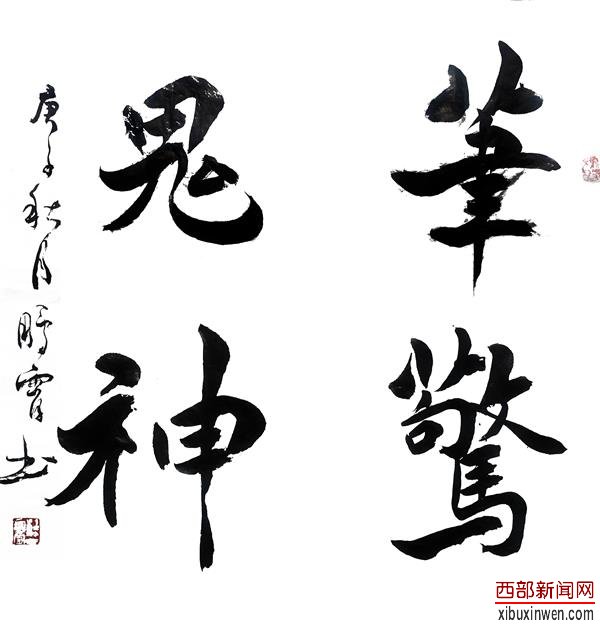 筆驚
鬼神
庚子秋月霄书
西部新闻网
xibuxinwen.com